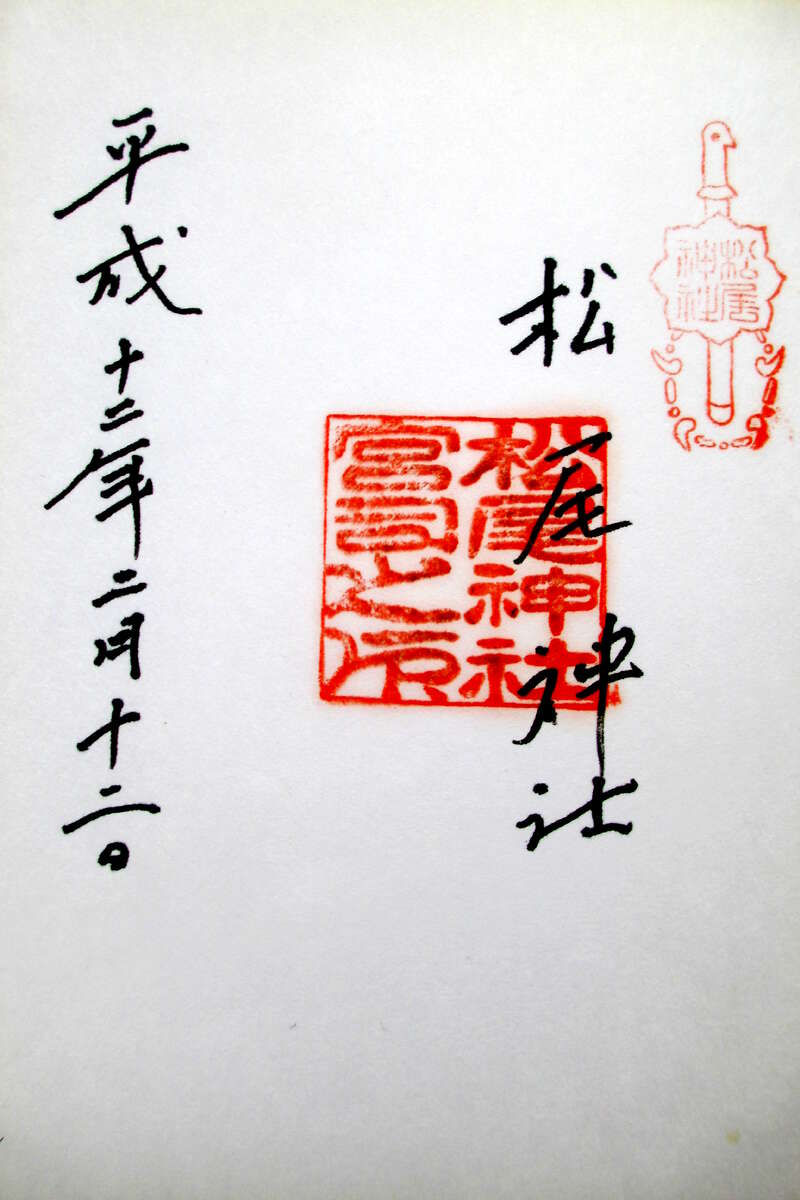 松尾
神社
松尾神社
松尾神社
宮司之印
平成十二年二月十二日